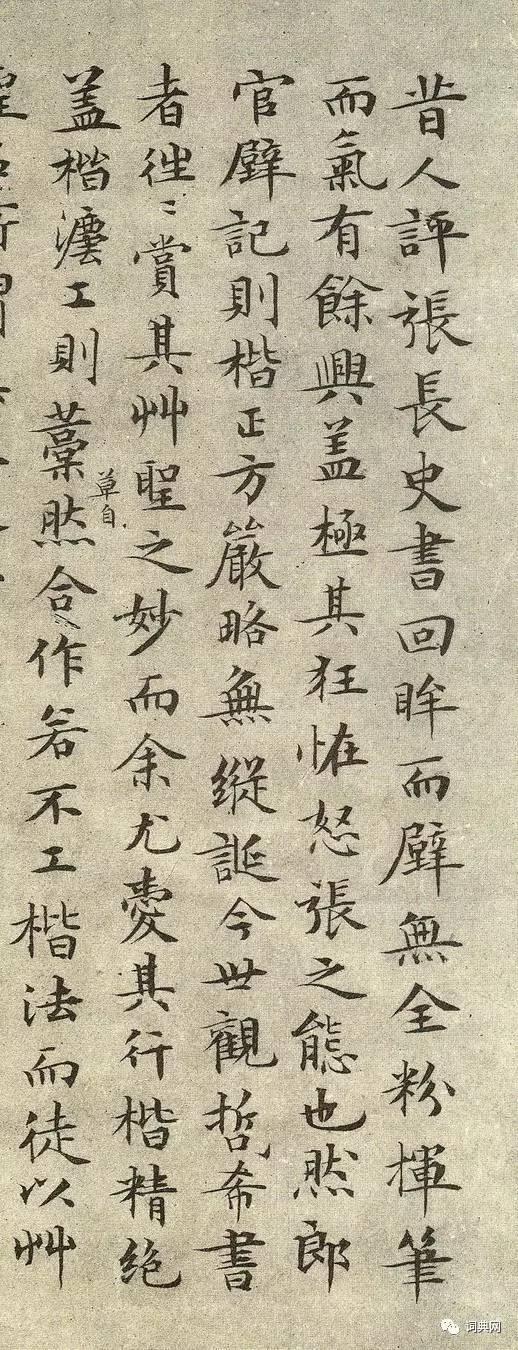 昔人評張長史書回眸而壁無全粉揮筆
而氣有餘興盖極其狂恠怒張之態也然郎
官壁記則楷正方嚴略無縱誕今世觀哲希書
者徃〻賞其艸聖之妙而余尤愛其行楷精絶
盖楷灋工則藁然合作若不工楷法而徒以艸
草自
词典网